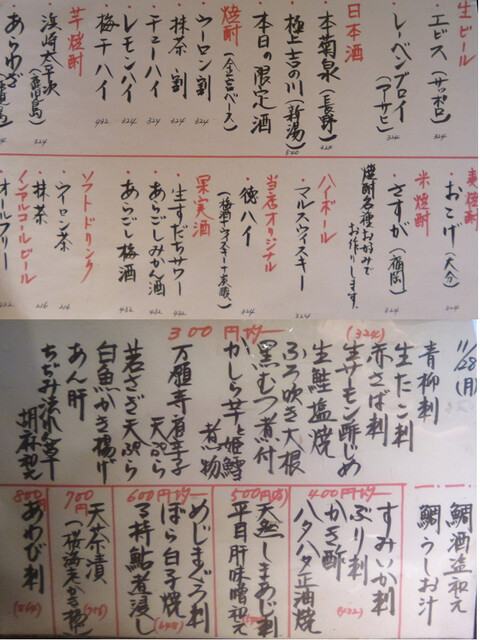 生ビール
・エビス(サッポロ)
・レーベンブロイ
(アサヒ)
324
日本酒
・本菊泉(長野)
324
・極上吉の川(新潟)
540
・本日の限定酒
焼酎(全量ベース)
・ウーロン割
324
・抹茶割
324
・チューハイ
324
・レモンハイ
432
・梅干ハイ
432
芋焼酎
・浜崎太平次
(鹿児島)
324
・あらわざ
(鹿児島)
麦焼酎
・おこげ(大分)
324
米焼酎
・さすが(福岡)
324
焼酎各種お好みで
お作りします。
ハイボール
・マルスウィスキー
324
当店オリジナル
・徳ハイ
(梅酒・ウィスキー・炭酸)
324
果実酒
・生すだちサワー
432
・あらごしみかん酒
432
・あらごし梅酒
432
ソフトドリンク
・ウーロン茶
216
・抹茶
216
ノンアルコールビール
・オールフリー
432
11/28(月)
300円均一
(324)
青柳刺
生たこ刺
赤さば刺
生サーモン酢じめ
生鮭塩焼
ふろ吹き大根
黒むつ煮付
かしら芋と姫鱈
煮物
万願寺唐辛子
天ぷら
若さぎ天ぷら
白魚かき揚げ
あん肝
ちぢみほうれん草
胡麻和え
鯛酒盗和え
鯛うしお汁
400円均一
すみいか刺
ぶり刺
かき酢
ハタハタ正油焼
(432)
500円均一
天然しまあじ刺
平目肝味噌和え
600円均一
めじまぐろ刺
ぼら白子焼
子持鮎煮浸し
(648)
700円
天茶漬
(756)
800円
あわび刺
(864)